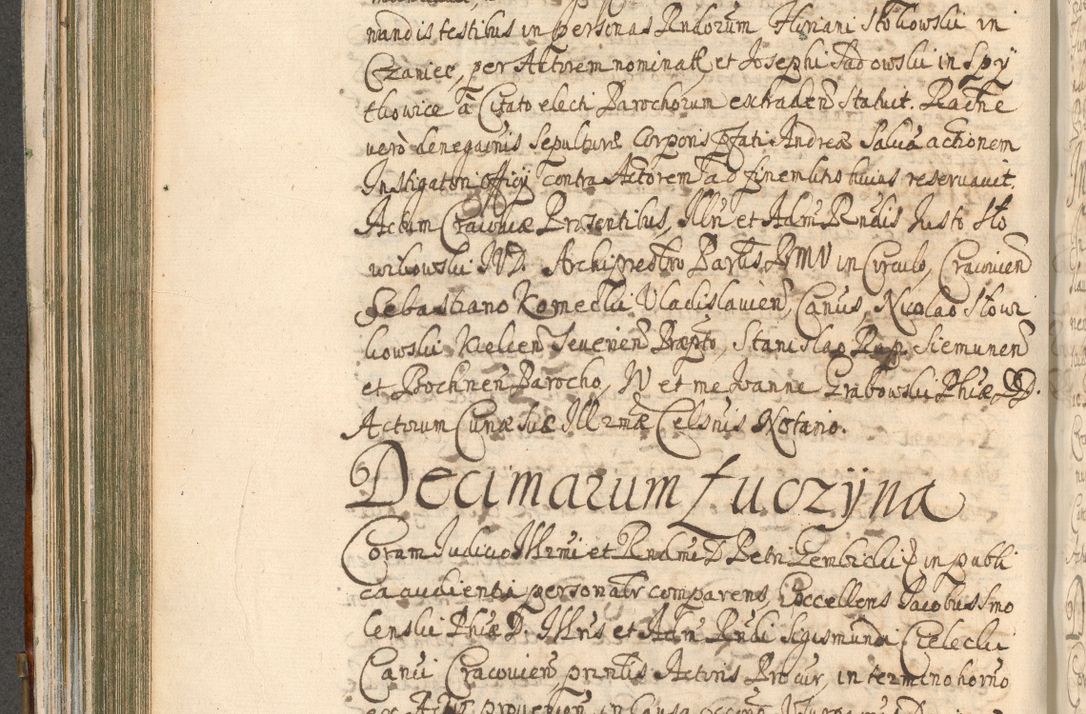 nandis testibus in personas Rndorum Floriani Stokowski in
Czaniec, per Actorem nominat, et Josephi Sadowski in Spy
tkowice à Citato electi Parochorum extraden Statuit. Rãone
verò denegãonis Sepulturæ Corporis Andreæ Salvâ actionem
Instigatori Officÿ contra Actorem ad finem litis huius reservavit.
Actum Cracoviæ Præsentibus, Illri et Adm Rndis Justo Slo
wikowski IVD. Archipresbro BMV in Circulo, Cracovien
Sebastiano Komecki Vladislavien, Canus, Nicolao Slowi
kowski Kielcen Severien Præpto, Stanislao Siemunen
et Bochnen Parocho, IV et me Joanne Grabowski Phiæ D.
Actorum Curiæ Suæ Illrmæ Celsnis Notario.
Decimarum Łuczÿna
Coram Judicio Illrmi et Rndmi D Petri Gembicki in publi
ca audientia personalr comparens, Excellens Jacobus Smo
lenski Phiæ D. Illris et Adm Rndi Sigismundi Czelecki
Canci Cracovien prntis Actoris Procur, in termino horno
ex Actis in Causa